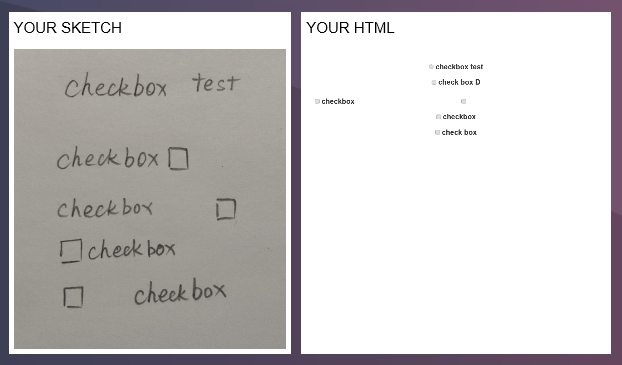 YOUR SKETCH
checkbox test
checkbox
checkbox
checkbox
checkbox
YOUR HTML
checkbox test
check box D
checkbox
checkbox
check box